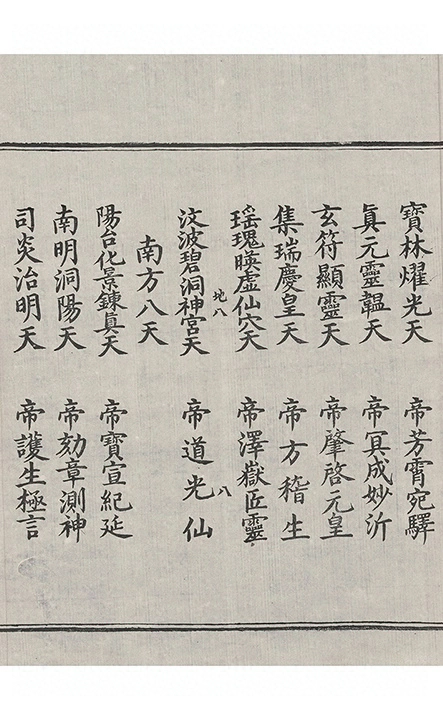 寶林燿光天 帝芳霄宛驛
眞元靈韞天 帝冥成妙沂
玄符顯靈天 帝肇啓元皇
集瑞慶皇天 帝方稽生
瑶瑰暎虚仙穴天 帝澤嶽匠靈
地八 八
汶波碧洞神宮天 帝道光仙
南方八天
陽台化景鍊眞天 帝寶宣紀延
南明洞陽天 帝劾章測神
司炎治明天 帝護生極言